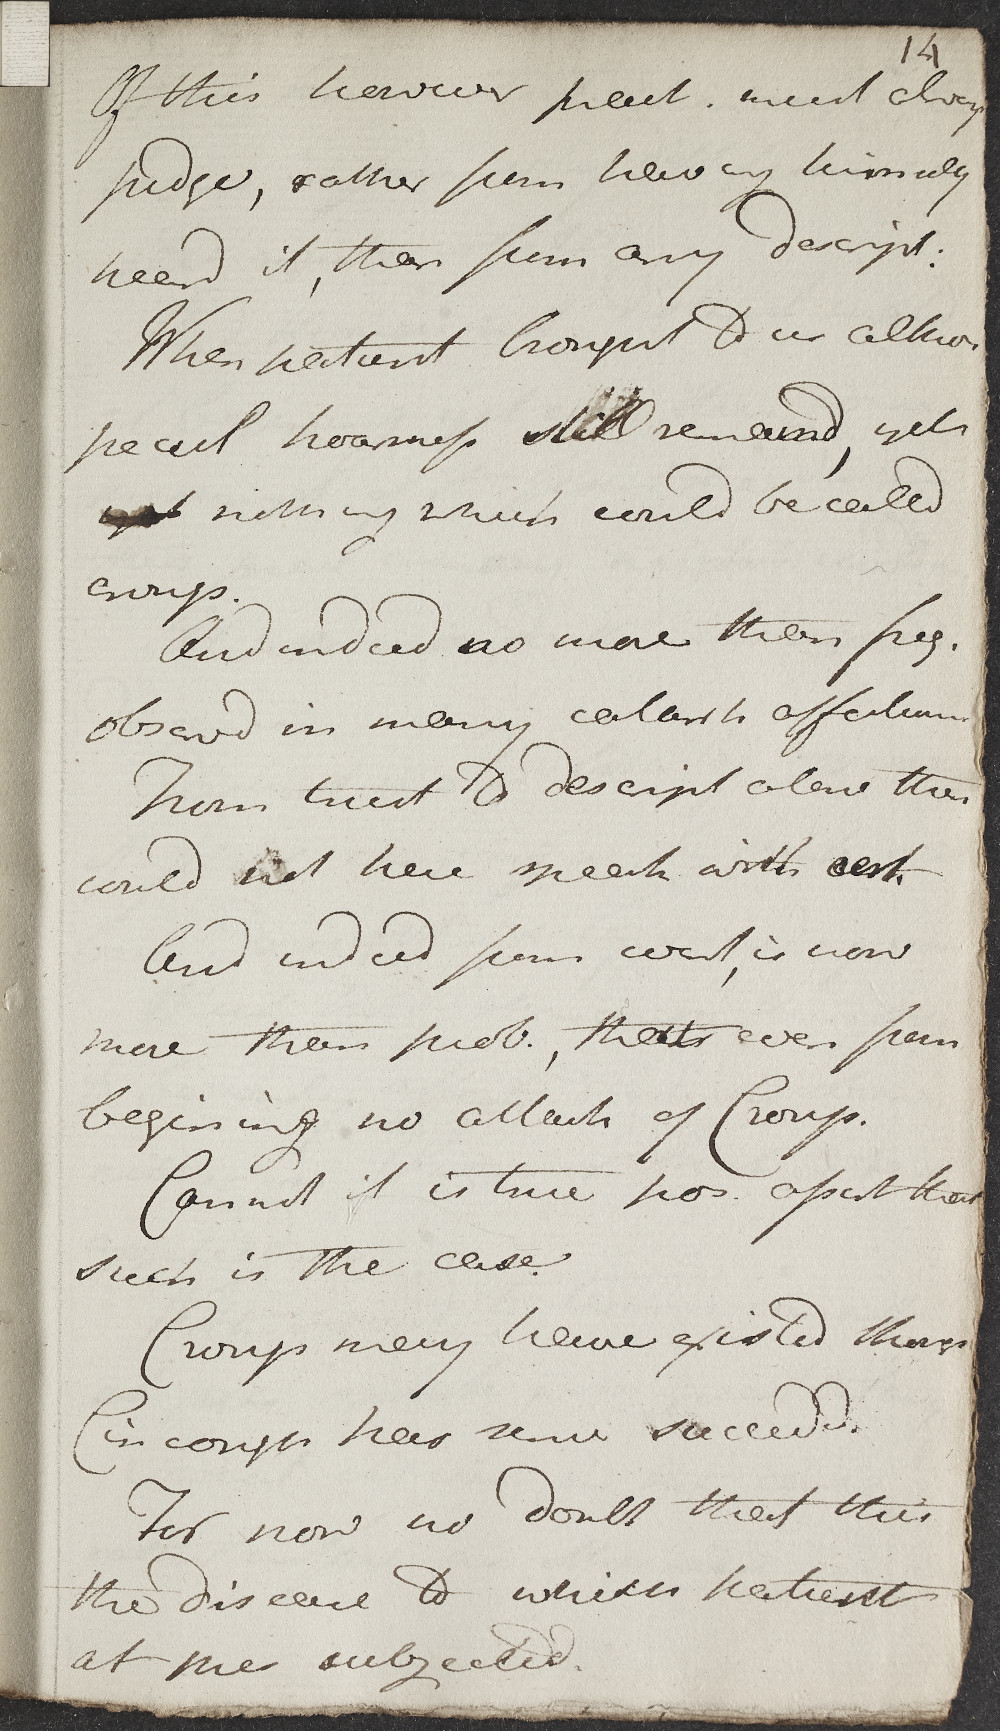 14
Of this however pract. must alway
judge, rather from having himself
heard it, than from any descript:
When patient brought to us altho'
pecul hoarsness still remaind, yet
nothing which could be called
croup.
And indeed no more than freq.
observd in many catarrh affections
From trust to descript alone then
could not here speak with cert.
And indeed from event, is now
more than prob., that even from
begining no attack of Croup.
Cannot it is true pos. assert that
such is the case.
Croup may have existed thoug
Chincough has since succeedd.
For now no doubt that this
the disease to which patient
at pres subjected.